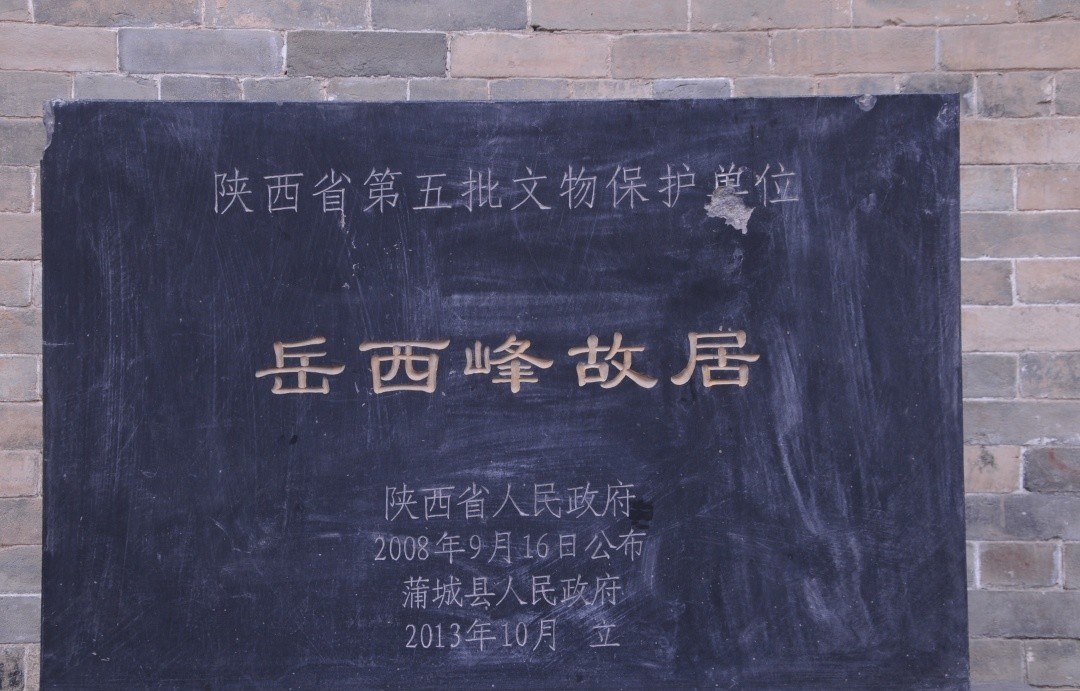 陕西省第五批文物保护单位
岳西峰故居
陕西省人民政府
2008年9月16日公布
蒲城县人民政府
2013年10月 立